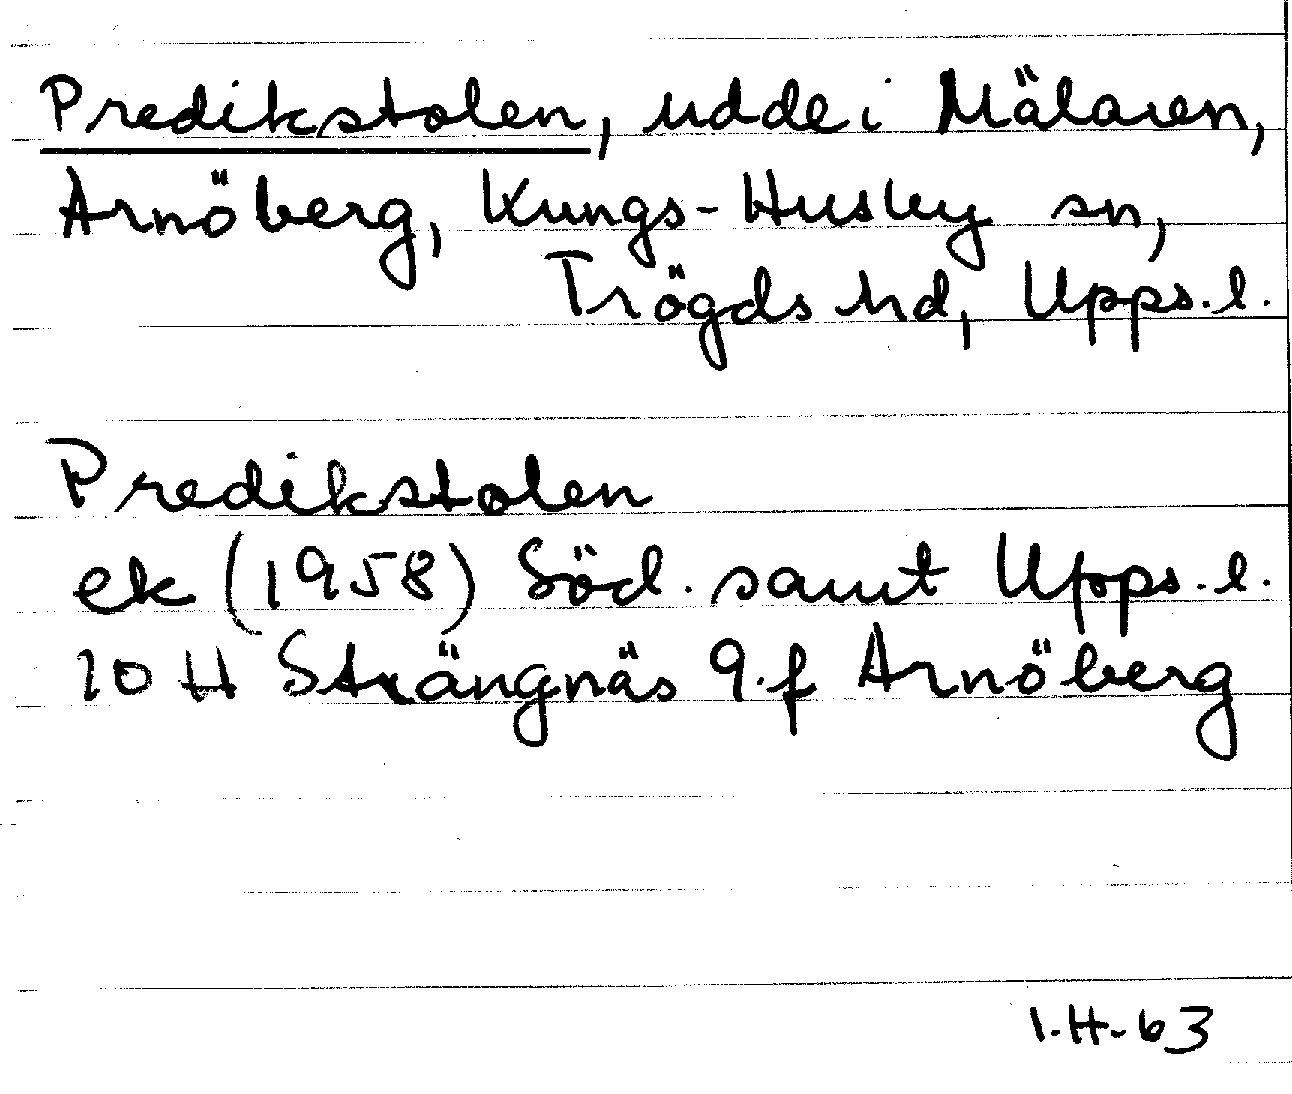 Predikstolen, udde i Mälaren,
Arnöberg, Kungs-Husby sn,
Trögds hd, Upps.l.
Predikstolen
ek (1958) Söd. samt Upps.l.
10 H Strängnäs 9.f Arnöberg
I.H-63